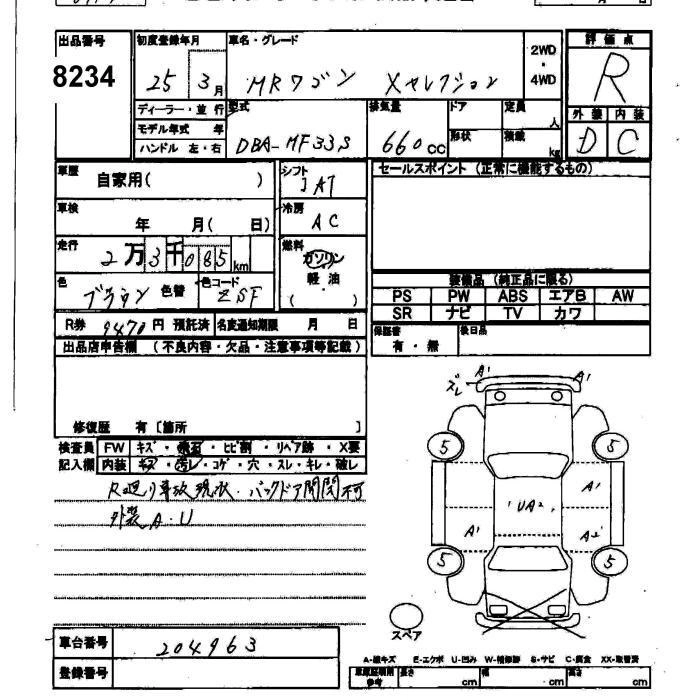 出品番号 8234
初度登録年月 25 3月
車名・グレード MRワゴン Xセレクション
2WD ・ 4WD
評価点 R
ディーラー・並行
モデル年式 年
ハンドル 左・右
型式 DBA-MF33S
排気量 660cc
ドア
形状
定員 人
積載 kg
外装 内装
D C
車歴 自家用( )
シフト IAT
セールスポイント (正常に機能するもの)
車検 年 月( 日)
冷房 AC
走行 2万3千085km
燃料 ガソリン
軽・油
( )
色 ブラウン 色替 色コード ZSF
装備品 (純正品に限る)
PS PW ABS エアB AW
SR ナビ TV カワ
R券 9470円 預託済 名変通知期限 月 日
保証書 有・無
後日品
出品店申告欄 (不良内容・欠品・注意事項等記載)
修復歴 有〔箇所 〕
検査員 FW キズ・飛石・ヒビ割・リペア跡・X要
記入欄 内装 キズ・汚レ・コゲ・穴・スレ・キレ・破レ
R廻り事故現状・バックドア開閉不可
外装 A・U
ズレ A1 A1
5 5
A1
UA2
A1 A2
5 5
スペア
車台番号 204963
登録番号
A-線キズ E-エクボ U-凹み W-補修跡 S-サビ C-腐食 XX-取替済
長さ cm 幅 cm 高さ cm